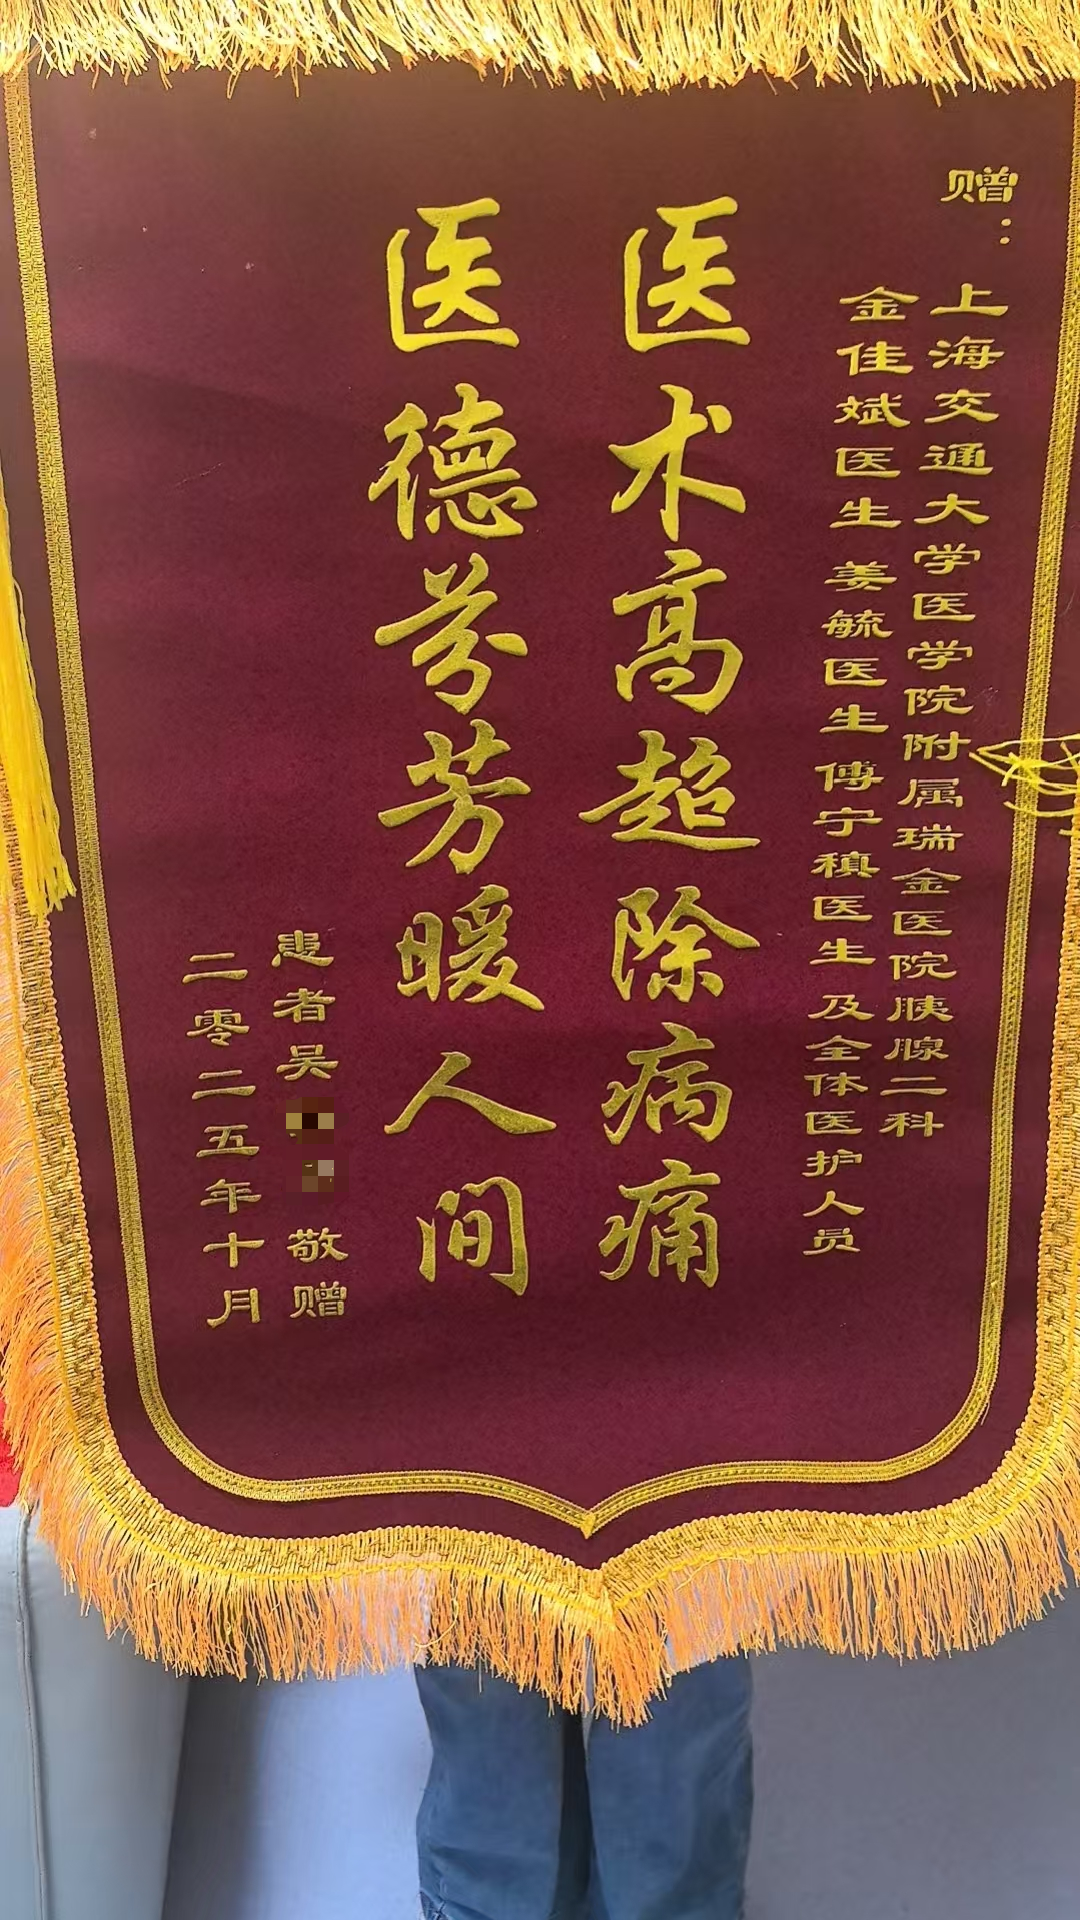 赠：
上海交通大学医学院附属瑞金医院胰腺二科
金佳斌医生 姜毓医生 傅宁禛医生 及全体医护人员
医术高超除病痛
医德芬芳暖人间
患者吴 敬赠
二零二五年十月